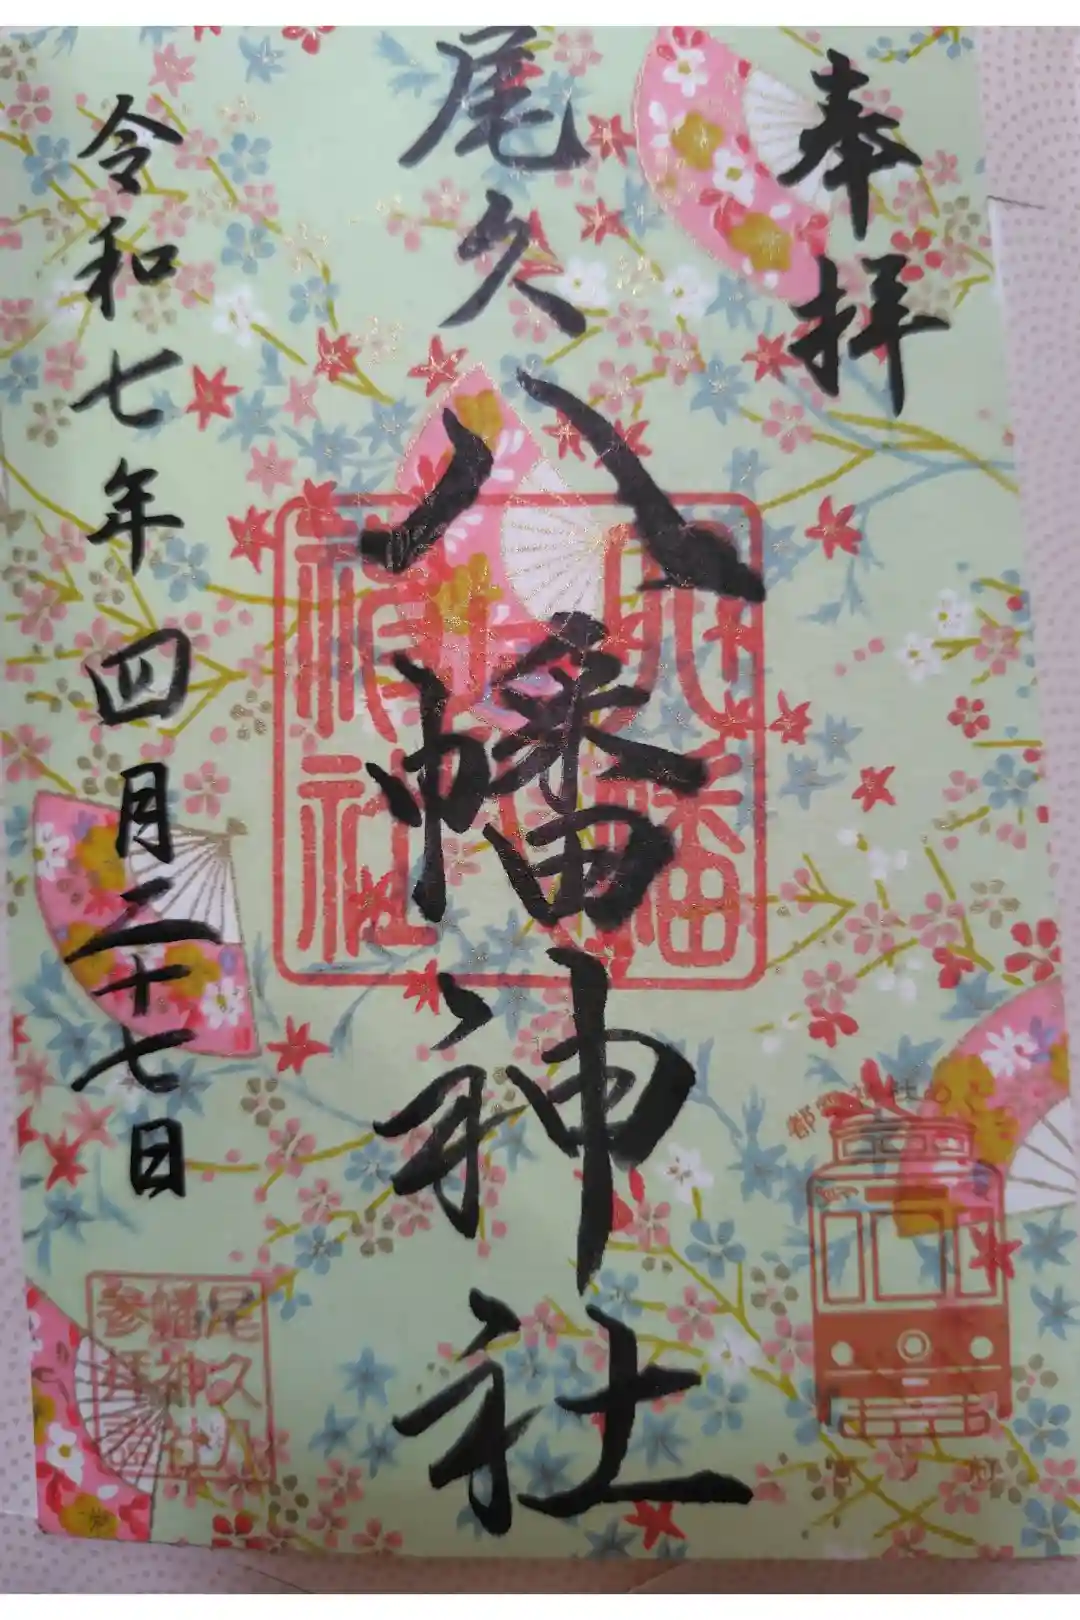 奉拝
尾久八幡神社
八幡
神社
令和七年四月二十七日
尾久八
幡神社
参拝